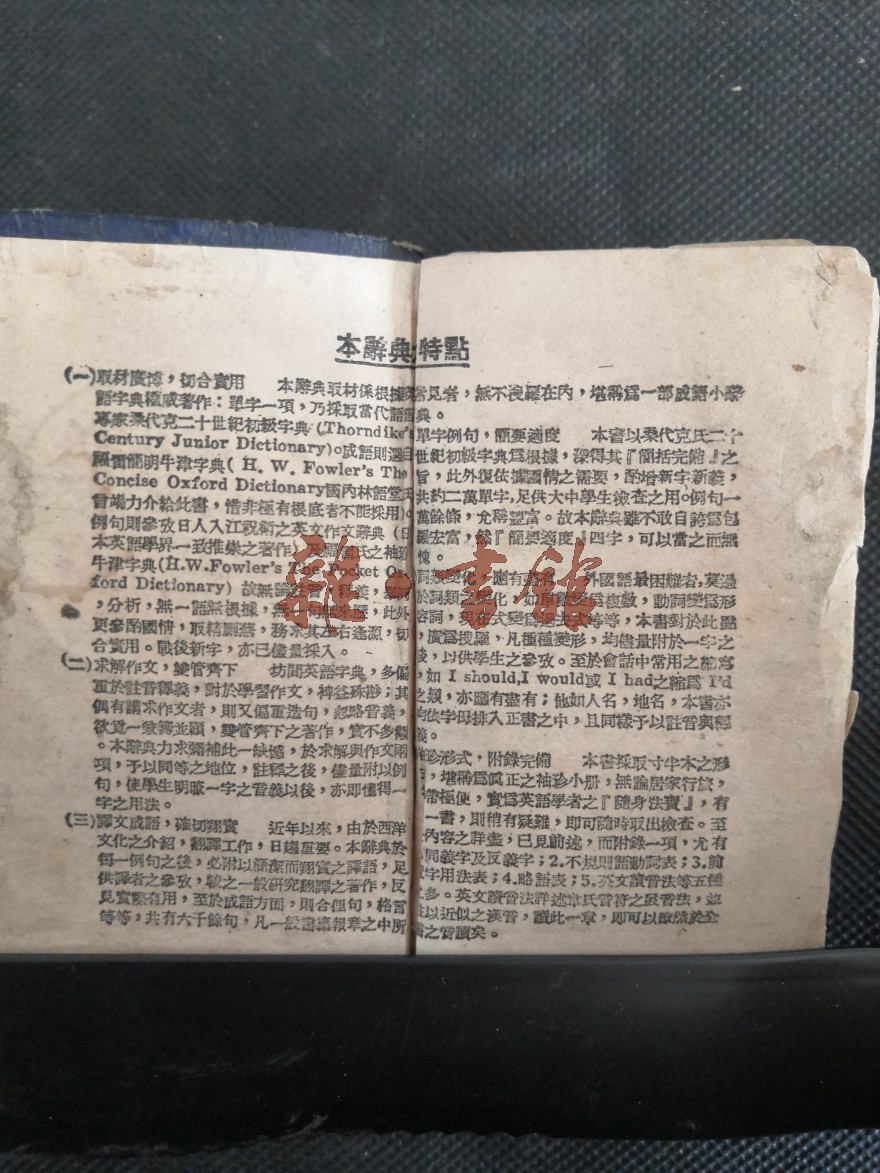 本辭典 特點
(一)取材廣博，切合實用 本辭典取材係根據英
語字典權威著作：單字一項，乃採取當代語言
專家桑代克二十世紀初級字典(Thorndike's
Century Junior Dictionary)。成語則選自
福雷簡明牛津字典( H. W. Fowler's The
Concise Oxford Dictionary國內林語堂氏
曾竭力介紹此書，惜非極有根底者不能採用)。
例句則參攷日人入江祝衛之英文作文辭典（日
本英語學界一致推崇之著作）及
牛津字典(H.W.Fowler's The Pocket Ox-
ford Dictionary) 故無論
，分析，無一語無根據，無一句無來歷，此外
更參酌國情，取精 ，務求其左右逢源，切
合實用。戰後新字，亦已儘量採入。
(二)求解作文，雙管齊下 坊間英語字典，多偏
重於註音釋義，對於學習作文，裨益殊尠；其
偶有講求作文者，則又偏重造句，忽略音義，
欲覓一兼籌並顧，雙管齊下之著作，實不多覯
。本辭典力求彌補此一缺憾，於求解與作文兩
項，予以同等之地位，註釋之後，儘量附以例
句，使學生明瞭一字之音義以後，亦即懂得一
字之用法。
(三)譯文成語，確切翔實 近年以來，由於西洋
文化之介紹，翻譯工作，日趨重要。本辭典於
每一例句之後，必附以簡潔而翔實之譯語，足
供譯者之參攷，較之一般研究翻譯之著作，反
見實際有用，至於成語方面，則合俚句，格言
等等，共有六千餘句，凡一般書籍報章之中所
常見者，無不搜羅在內，堪稱為一部成語小辭
典。
單字例句，簡要適度 本書以桑代克氏二十
世紀初級字典為根據，深得其『簡括完備』之
旨，此外復依據國情之需要，酌增新字新義，
共約二萬單字，足供大中學生檢查之用。例句一
萬餘條，允稱豐富。故本辭典雖不敢自誇為包
羅宏富，然『簡要適度』四字，可以當之而無
愧。
詞類變化，應有盡有 外國語最困難者，莫過
於詞類變化，如單數變為複數，動詞變為形
容詞，現在式變為過去式等等，本書對於此點
，廣為搜羅，凡種種變形，均儘量附於一字之
後，以供學生之參攷。至於會話中常用之縮寫
，如 I should, I would或 I had之縮為 I'd
之類，亦應有盡有；他如人名，地名，本書亦
均依字母排入正書之中，且同樣予以註音與釋
義。
袖珍形式，附錄完備 本書採取寸半本之形
式，堪稱為眞正之袖珍小册，無論居家行旅，
攜帶極便，實為英語學者之『隨身法寶』，有
一書，則稍有疑難，即可隨時取出檢查。至
內容之詳盡，已見前述，而附錄一項，尤有
同義字及反義字；2.不規則語動詞表；3.前
置字用法表；4.略語表；5.英文讀音法等五種
之多。英文讀音法詳述韋氏音符之發音法，並
註以近似之漢音，讀此一章，則可以瞭然於全
書之音讀矣。
雜·書館